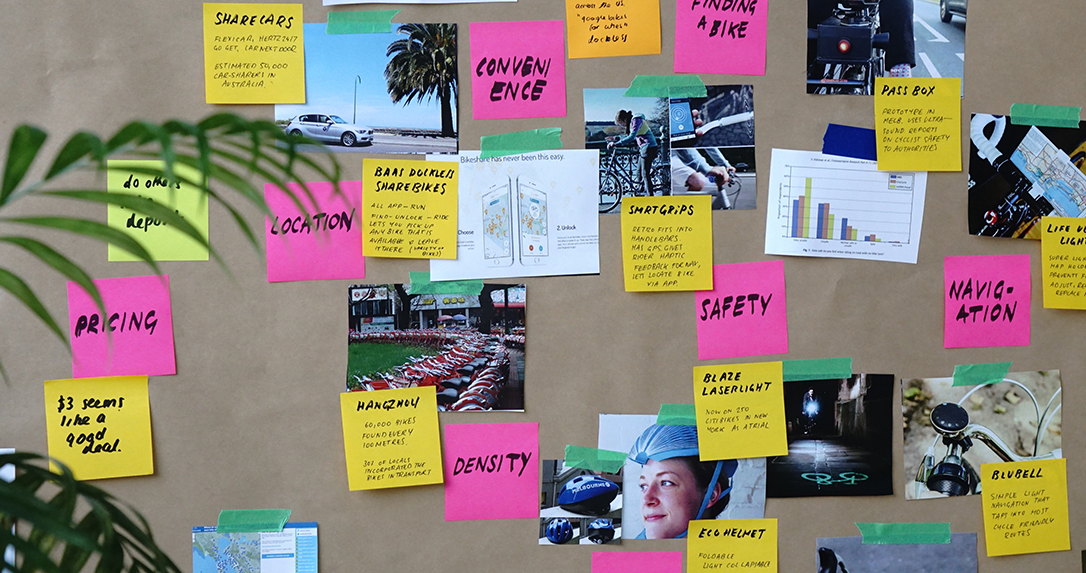 SHARECARS
FLEXICAR, HERTZ 24/7
GO GET, CARNEXTDOOR
ESTIMATED 50,000
CAR-SHARERS IN
AUSTRALIA
CONVENI
ENCE
across the US.
dockless
FINDING
A BIKE
PASS BOX
PROTOTYPE IN
MELB. USES ULTRA-
SOUND REPORTS
ON CYCLIST SAFETY
TO AUTHORITIES
do others
LOCATION
BAAS DOCKLESS
SHAREBIKES
ALL APP-RUN
FIND-UNLOCK-RIDE
LETS YOU PICK UP
ANY BIKE THAT IS
AVAILABLE & LEAVE
IT THERE (VARIETY OF
BIKES)
Bikeshare has never been this easy.
Choose
2. Unlock
SMRTGRiPS
RETRO FITS INTO
HANDLEBARS.
HAS GPS, GIVES
RIDER HAPTIC
FEEDBACK FOR NAV,
LETS LOCATE BIKE
VIA APP.
LIGHT
SUPER
MAP
PREVENTS
ADJUST,
REPLACE
PRICING
SAFETY
NAVIG-
ATION
$3 seems
like a
good
deal.
HANGZHOU
60,000 BIKES
FOUND EVERY
100 METRES.
30% OF LOCALS
INCORPORATED THE
BIKES IN TRANSPORT
DENSITY
BLAZE
LASERLIGHT
NOW ON 250
CITIBIKES IN NEW
YORK AS ATRIAL
MELBOURNE
BLUBELL
SIMPLE LIGHT
NAVIGATION THAT
TAPS INTO MOST
CYCLE FRIENDLY
ROUTES
ECO HELMET
FOLDABLE
LIGHT COLLAPSABLE